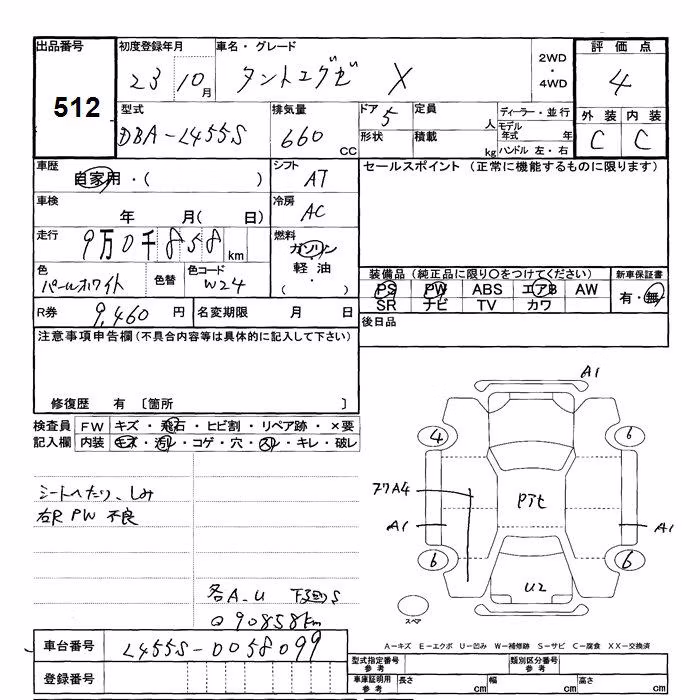 出品番号 初度登録年月 車名・グレード 2WD・4WD 評価点
512 23 10月 タントエグゼ X 4
型式 排気量 ドア 5 定員 人 ディーラー・並行 外装 内装
DBA-L455S 660 CC 形状 積載 kg モデル年式 年 ハンドル 左・右 C C
車歴 自家用・( ) シフト AT セールスポイント (正常に機能するものに限ります)
車検 年 月( 日) 冷房 AC
走行 9万0千858km 燃料 ガソリン・軽油・( )
色 パールホワイト 色替 色コード W24
装備品(純正品に限り○をつけてください) 新車保証書
PS PW ABS エアB AW 有・無
SR ナビ TV カワ
R券 9,460円 名変期限 月 日 後日品
注意事項申告欄(不具合内容等は具体的に記入して下さい)
修復歴 有 〔箇所 〕
検査員 FW キズ・飛石・ヒビ割・リペア跡・×要
記入欄 内装 キズ・汚レ・コゲ・穴・スレ・キレ・破レ
シートへたり、しみ
右R PW 不良
各A.U 下廻りS
Q 90858km
A1
4 6
A4
Pえセ
A1 A1
6 6
U2
スペア
A-キズ E-エクボ U-凹み W-補修跡 S-サビ C-腐食 XX-交換済
車台番号 L455S-0058099
登録番号
型式指定番号 参考 類別区分番号 参考
車庫証明用 参考 長さ cm 幅 cm 高さ cm